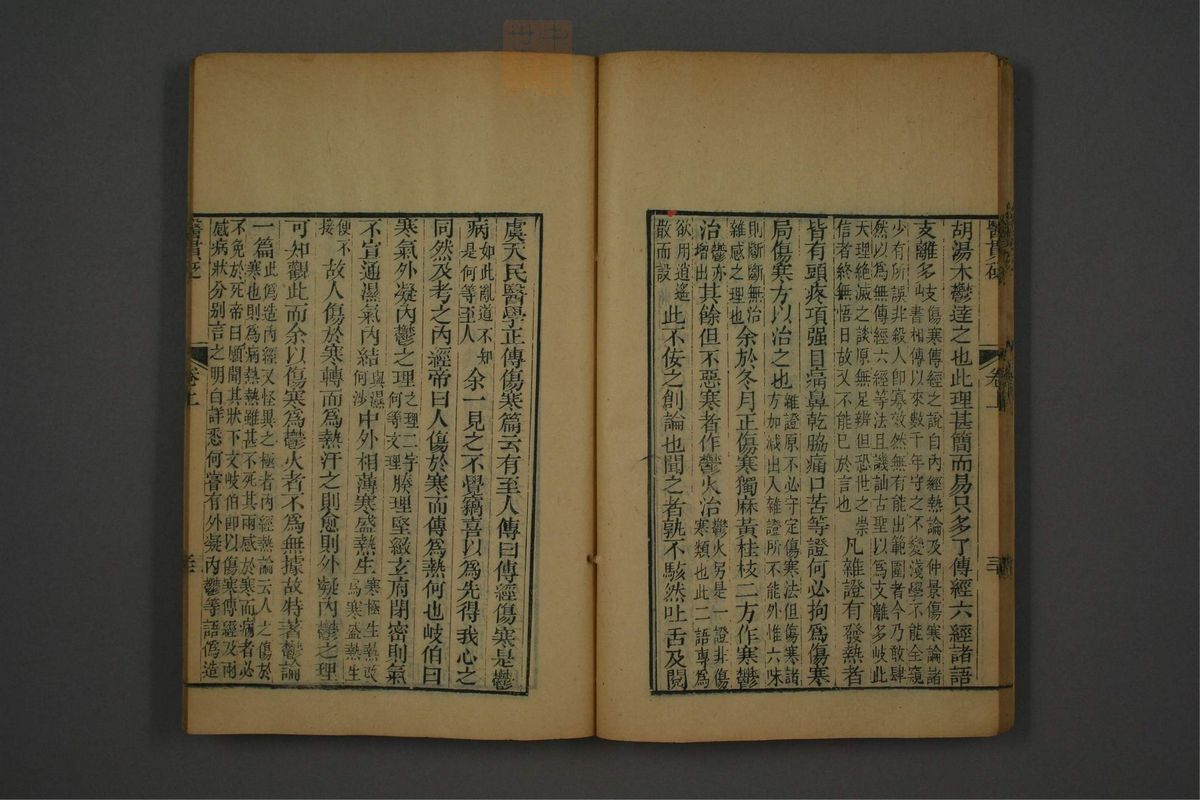 胡湯木鬱達之也此理甚簡而易只多了傳經六經諸語
支離多岐傷寒傳經之說自內經熱論及仲景傷寒論諸
書相傳以來數千年守之不變淺學不能全窺
少有所誤非殺人卽寡效然無有能出範圍者今乃敢肆
然以為無傳經六經等法且譏訕古聖以為支離多岐此
天理絶滅之談原無足辨但恐世之崇
信者終無悟日故又不能已於言也凡雜證有發熱者
皆有頭疼項强目痛鼻乾脇痛口苦等證何必拘為傷寒
局傷寒方以治之也雜證原不必守定傷寒法但傷寒諸
方如減出入雜證所不能外惟六味
則斷斷無治
雜感之理也余於冬月正傷寒獨麻黃桂枝二方作寒鬱
治鬱亦
增出其餘但不惡寒者作鬱火治鬱火另是一證非傷
寒類也此二語專為
欲用逍遙
散而設此不佞之創論也聞之者孰不駭然吐舌及閱
虞天民醫學正傳傷寒篇云有至人傳曰傳經傷寒是鬱
病如此亂道不知
是何等至人余一見之不覺竊喜以為先得我心之
同然及考之內經帝曰人傷於寒而傳為熱何也岐伯曰
寒氣外凝內鬱之理之理二字
何等文理腠理堅緻玄府閉密則氣
不宣通濕氣內結與濕
何涉中外相薄寒盛熱生寒極生熱改
為寒盛熱生
便不
接故人傷於寒轉而為熱汗之則愈則外凝內鬱之理
可知觀此而余以傷寒為鬱火者不為無據故特著鬱論
一篇此偽造內經又怪異之極者內經熱論云人之傷於
寒也則為病熱熱雖甚不死其兩感於寒而病者必
不免於死帝曰願聞其狀下文岐伯卽以傷寒傳經及兩
感病狀分别言之明白詳悉何嘗有外凝內鬱等語偽造
醫貫砭
卷上